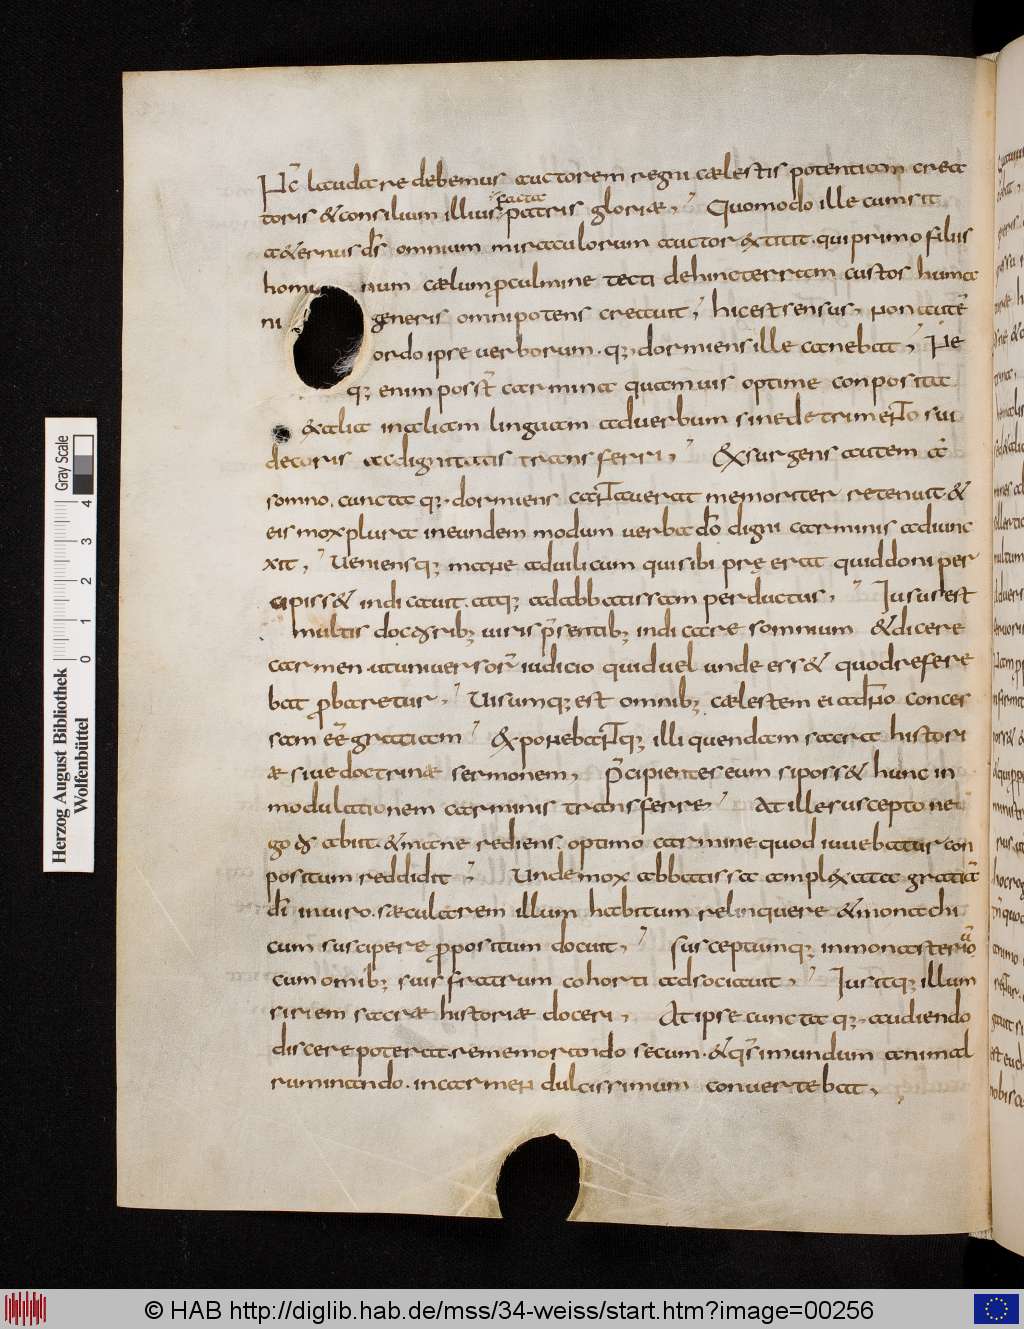 Nc̄ laudare debemus auctorem regni cælestis potentiam crea
facta
toris &consilium illius patris gloriæ, Quomodo ille cum sit
a&ernus ds̄ omnium miraculorum auctor extitit. qui primo filiis
homi num cælum p culmine tecti dehinc terram custos huma
ni generis omnipotens creauit, hic est sensus, non autē
ordo ipse uerborum. q; dormiens ille canebat, Ne
q; enim posst̄ carmina quamuis optime conposita
ex alia in aliam linguam ad uerbum sine detrimento sui
decoris ac dignitatis transferri, Exsurgens autem a
somno. cuncta q; dormiens cantauerat memoriter retenuit. &
eis mox plura in eundem modum uerba dō digni carminis adiunc
xit, Ueniensq; mane ad uilicum qui sibi pręerat quid doni per
cipiss& indicauit. atq; ad abbatissam perductus, Iusus est
multis doctorib; uiris p̄sentib; indicare somnium &dicere
carmen. ut uniuersor̄ iudicio quid uel unde ess& quod refere
bat probaretur, Uisumq; est omnib; cælestem ei a dn̄o conces
sam eē gratiam Exponebantq; illi quendam sacra histori
æ siue doctrinæ sermonem, p̄cipientes eum si poss& hunc in
modulationem carminis transferre, At ille suscepto ne
gotio abiit. &mane rediens. optimo carmine quod iuuebatur con
positum reddidit, Unde mox abbatissa amplexata gratiā
dī in uiro. sæcularem illum habitum relinquere &monachi
cum suscipere propositum docuit, susceptumq; in monasterio
cum omib; suis fratrum cohorti adsociauit, Iusitq; illum
siriem sacræ historiæ doceri, At ipse cuncta q; audiendo
discere poterat. rememorando secum. &q̄si mundum animal
ruminando. in carmen dulcissimum conuertebat,
Herzog August Bibliothek
Wolfenbüttel
Gray Scale
0 1 2 3 4
© HAB http://diglib.hab.de/mss/34-weiss/start.htm?image=00256